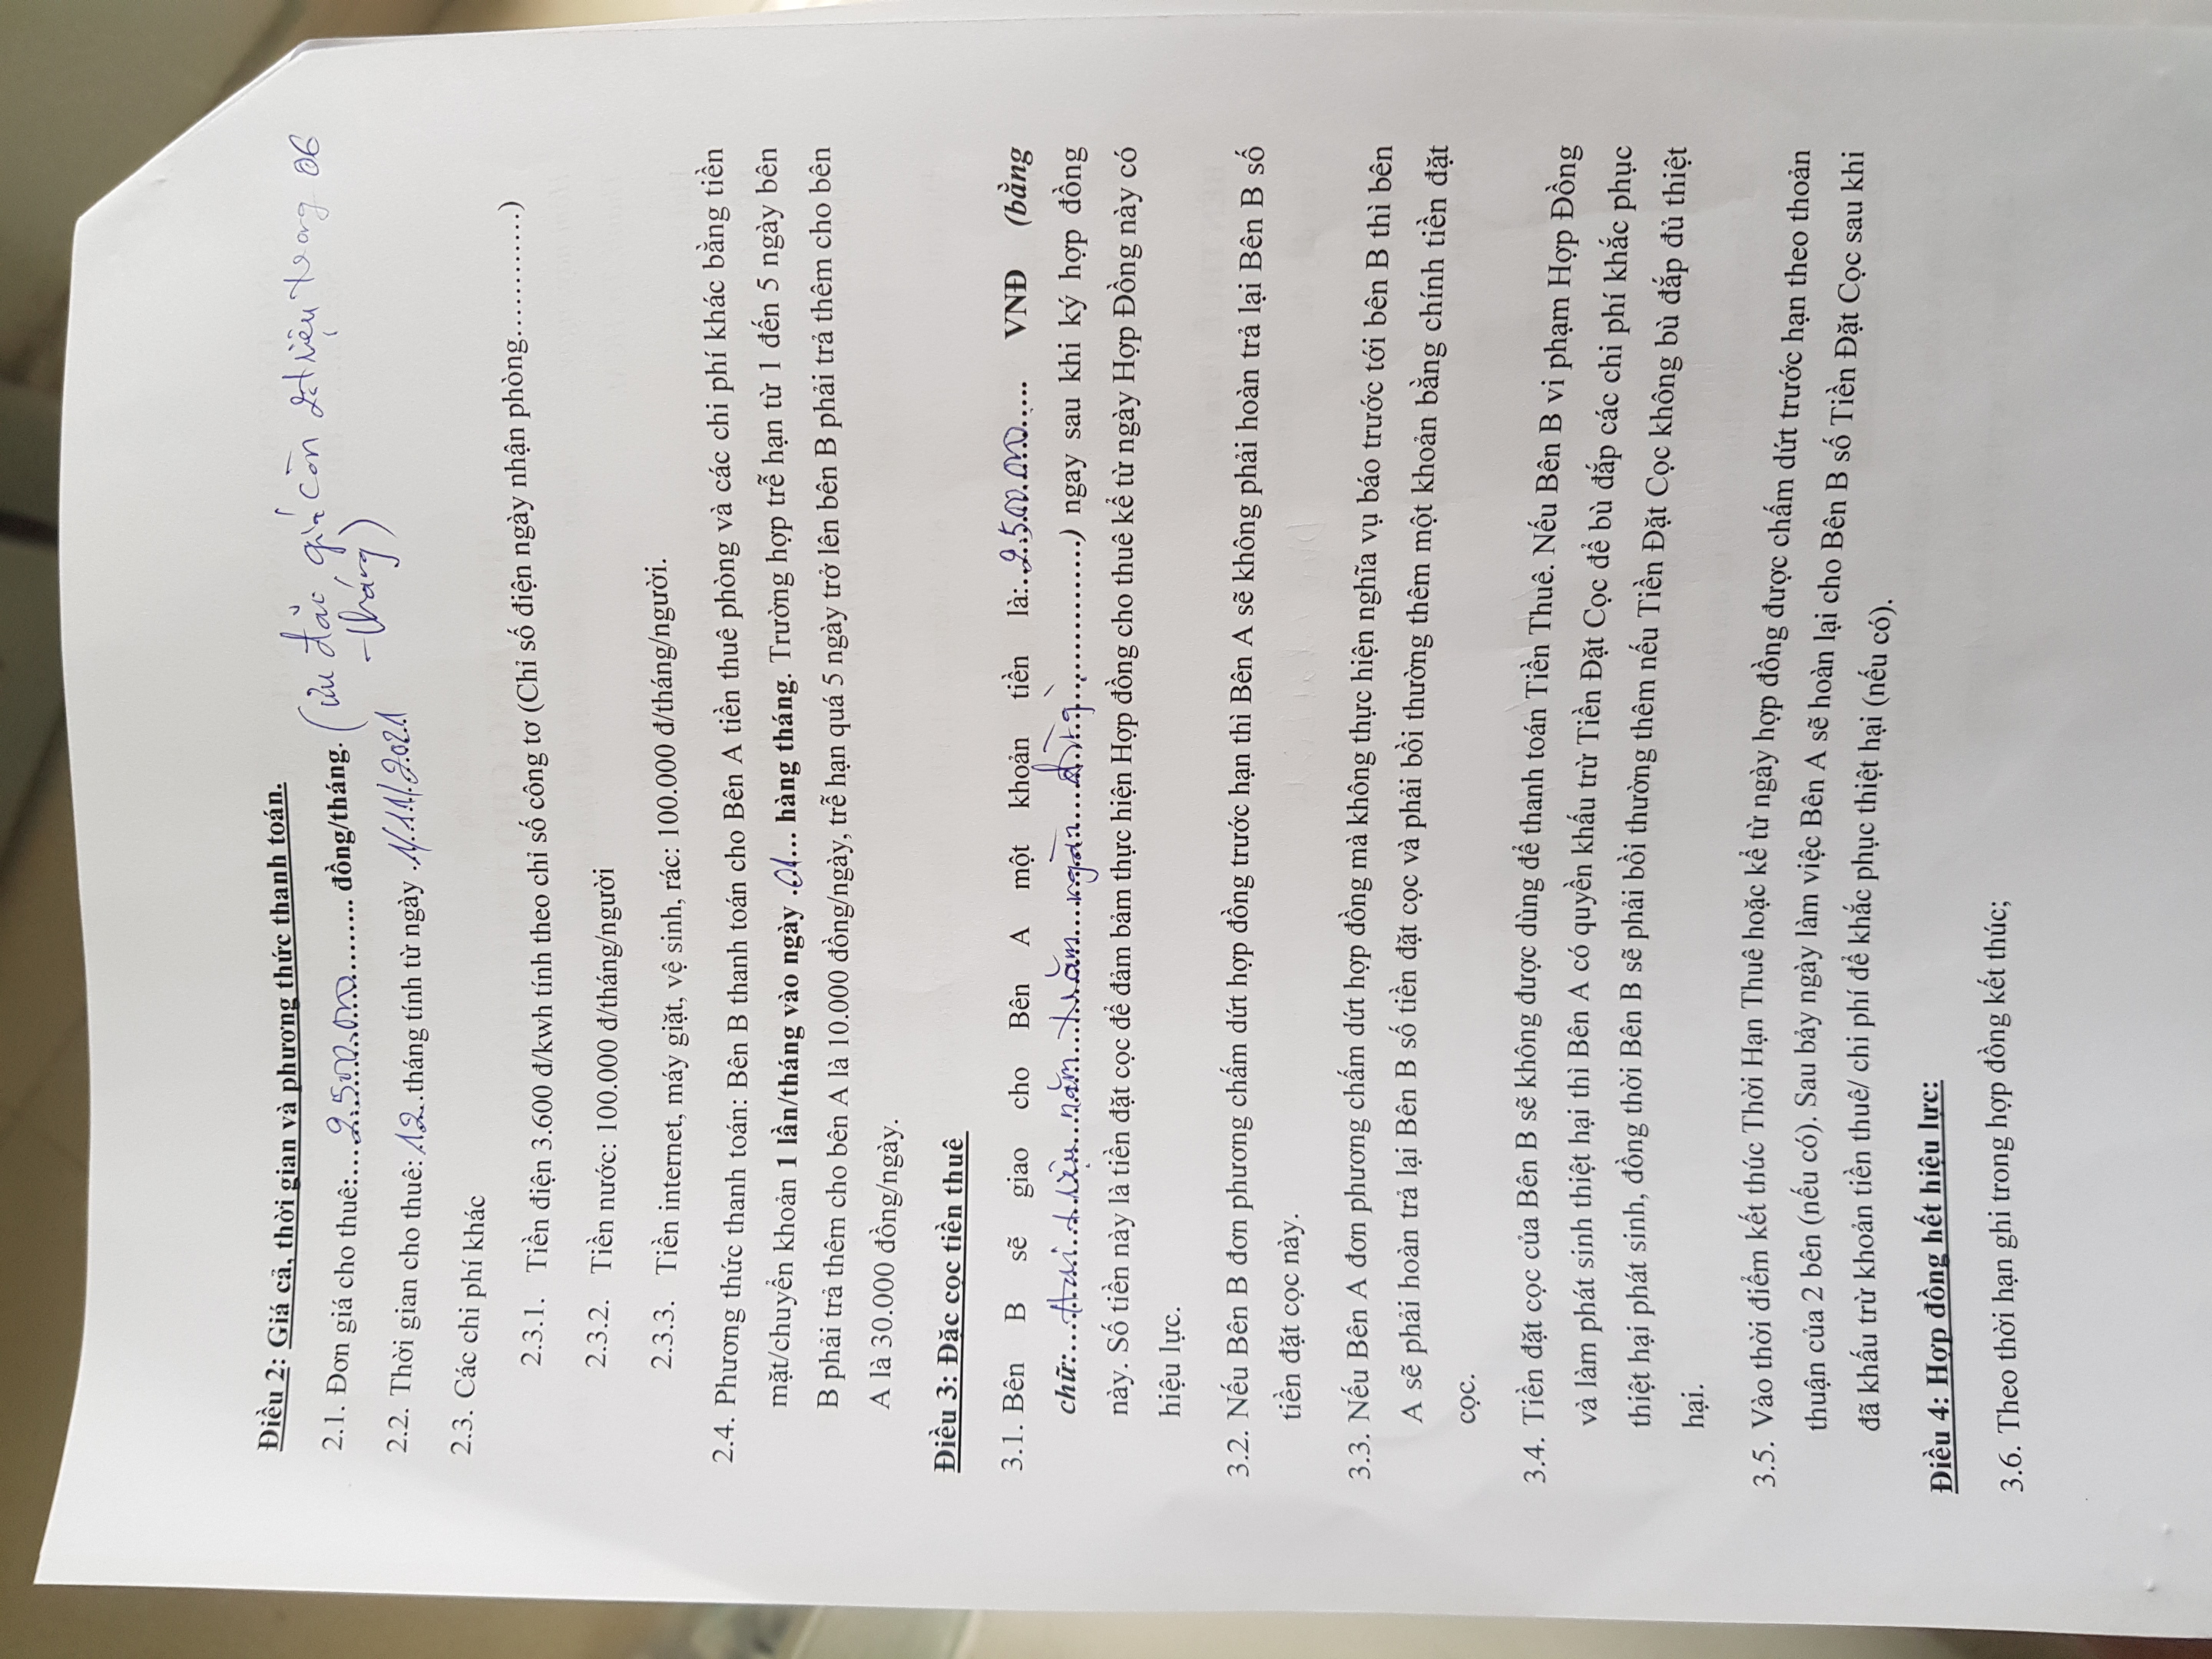 Điều 2: Giá cả, thời gian và phương thức thanh toán.
2.1. Đơn giá cho thuê:....2.500.000......... đồng/tháng. (ưu đãi giá còn 2 triệu trong 06
tháng)
2.2. Thời gian cho thuê: 12 tháng tính từ ngày 1/11/2021
2.3. Các chi phí khác
2.3.1. Tiền điện 3.600 đ/kwh tính theo chỉ số công tơ (Chỉ số điện ngày nhận phòng............)
2.3.2. Tiền nước: 100.000 đ/tháng/người
2.3.3. Tiền internet, máy giặt, vệ sinh, rác: 100.000 đ/tháng/người.
2.4. Phương thức thanh toán: Bên B thanh toán cho Bên A tiền thuê phòng và các chi phí khác bằng tiền
mặt/chuyển khoản 1 lần/tháng vào ngày .01... hàng tháng. Trường hợp trễ hạn từ 1 đến 5 ngày bên
B phải trả thêm cho bên A là 10.000 đồng/ngày, trễ hạn quá 5 ngày trở lên bên B phải trả thêm cho bên
A là 30.000 đồng/ngày.
Điều 3: Đăc cọc tiền thuê
3.1. Bên B sẽ giao cho Bên A một khoản tiền là:..2.500.000.... VNĐ (bằng
chữ:....Hai triệu năm trăm ngàn đồng..............) ngay sau khi ký hợp đồng
này. Số tiền này là tiền đặt cọc để đảm bảm thực hiện Hợp đồng cho thuê kể từ ngày Hợp Đồng này có
hiệu lực.
3.2. Nếu Bên B đơn phương chấm dứt hợp đồng trước hạn thì Bên A sẽ không phải hoàn trả lại Bên B số
tiền đặt cọc này.
3.3. Nếu Bên A đơn phương chấm dứt hợp đồng mà không thực hiện nghĩa vụ báo trước tới bên B thì bên
A sẽ phải hoàn trả lại Bên B số tiền đặt cọc và phải bồi thường thêm một khoản bằng chính tiền đặt
cọc.
3.4. Tiền đặt cọc của Bên B sẽ không được dùng để thanh toán Tiền Thuê. Nếu Bên B vi phạm Hợp Đồng
và làm phát sinh thiệt hại thì Bên A có quyền khấu trừ Tiền Đặt Cọc để bù đắp các chi phí khắc phục
thiệt hại phát sinh, đồng thời Bên B sẽ phải bồi thường thêm nếu Tiền Đặt Cọc không bù đắp đủ thiệt
hại.
3.5. Vào thời điểm kết thúc Thời Hạn Thuê hoặc kể từ ngày hợp đồng được chấm dứt trước hạn theo thoản
thuận của 2 bên (nếu có). Sau bảy ngày làm việc Bên A sẽ hoàn lại cho Bên B số Tiền Đặt Cọc sau khi
đã khấu trừ khoản tiền thuê/ chi phí để khắc phục thiệt hại (nếu có).
Điều 4: Hợp đồng hết hiệu lực:
3.6. Theo thời hạn ghi trong hợp đồng kết thúc;